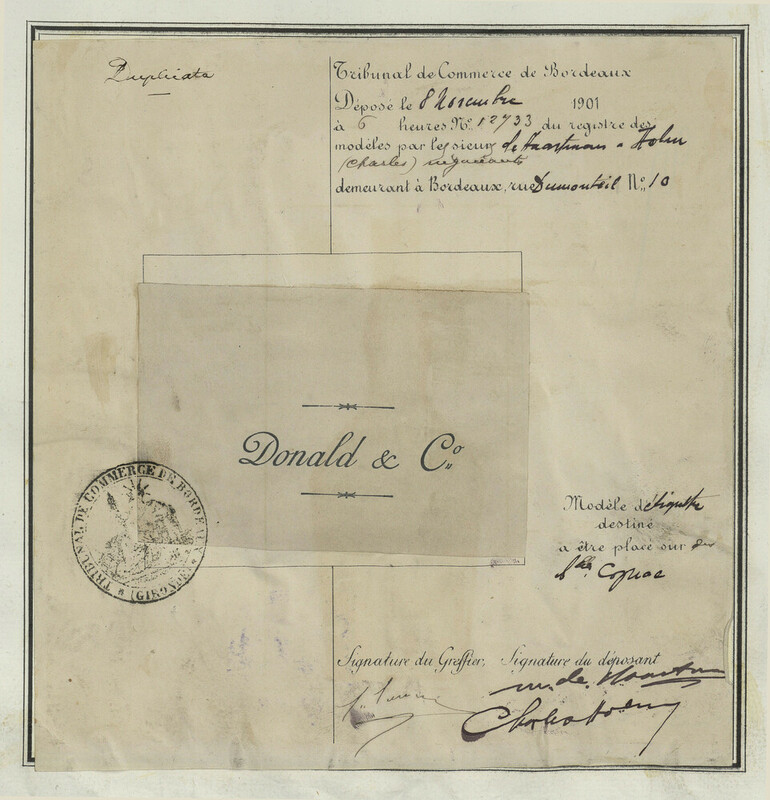 Duplicata
Tribunal de Commerce de Bordeaux
Déposé le 8 Novembre 1901
à 6 heures N° 12733 du registre des
modèles par les sieurs de Haartman
(Charles) négociants
demeurant à Bordeaux, rue Dumonteil N° 10
Donald & Co.
TRIBUNAL DE COMMERCE DE BORDEAUX * (GIRONDE) *
Modèle d'étiquette
destiné
a être placé sur des
Blles Cognac
Signature du Greffier, Signature du déposant
m. de Haartman
Charles